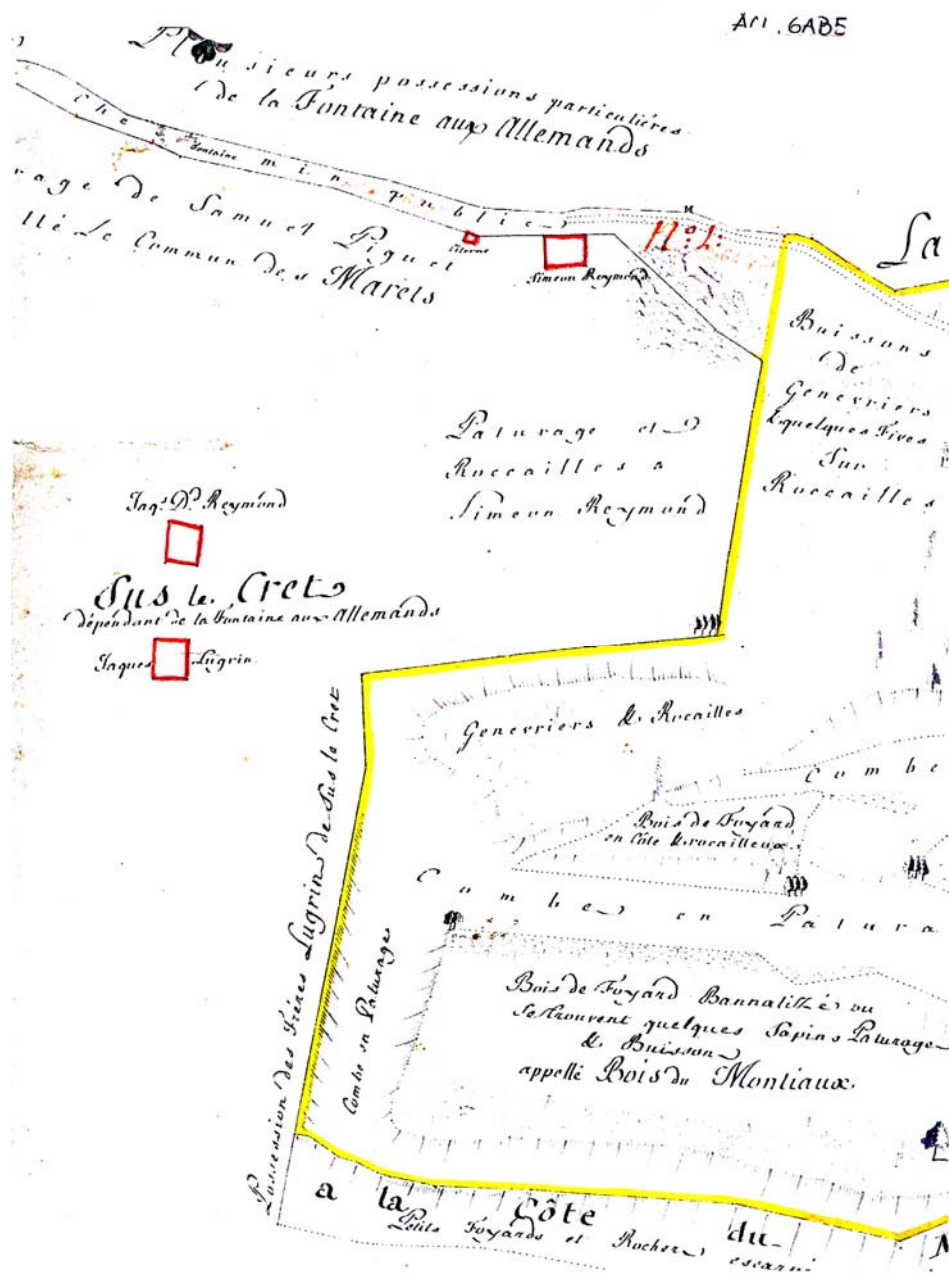 ACV. 6AB5
Plusieurs possessions particulières
de la Fontaine aux Allemands
Chemin public
fontaine
rage de Samuel Piguet
llé Le Commun des Marets
Citerne
Simeon Reymond
N:
La
Buissons
de
Genevriers
& quelques Fives
Sur
Roccailles
Paturage et
Roccailles a
Simeon Reymond
Jaq.s D.d Reymond
Sus le Cret
dépendant de la Fontaine aux Allemands
Jaques Lugrin
Genevriers & Rocailles
Combe
Bois de Foyard
en Côte & rocailleux.
Combe en Patura
Possession des Frères Lugrin de Sus le Cret
Combe en Paturages
Bois de Foyard Bannalizé ou
se trouvent quelques Sapins Paturage
& Buisson
appellé Bois du Montiaux.
a la Côte du
Petits Foyards et Rochers